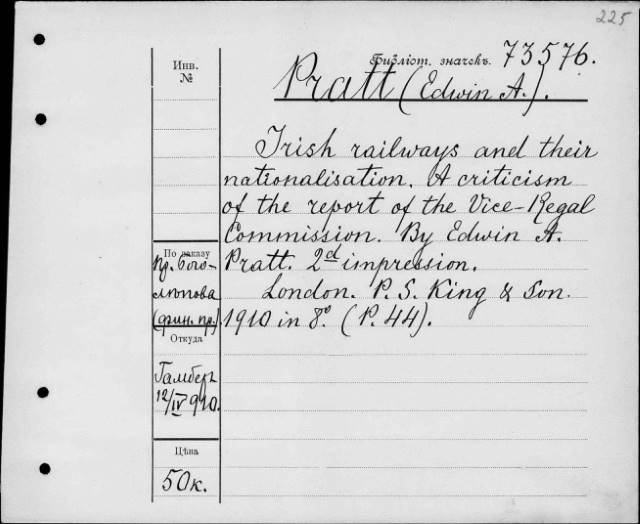 225
Библіот. значекъ. 73576.
Инв.
№
Pratt (Edwin A.).
Irish railways and their
nationalisation. A criticism
of the report of the Vice-Regal
Commission. By Edwin A.
Pratt. 2d impression.
London. P. S. King & Son.
1910 in 8°. (P. 44).
По заказу
пр. Бого-
лѣпова
(фин. пр.)
Откуда
Гамберъ
12/IV 910.
Цѣна
50к.